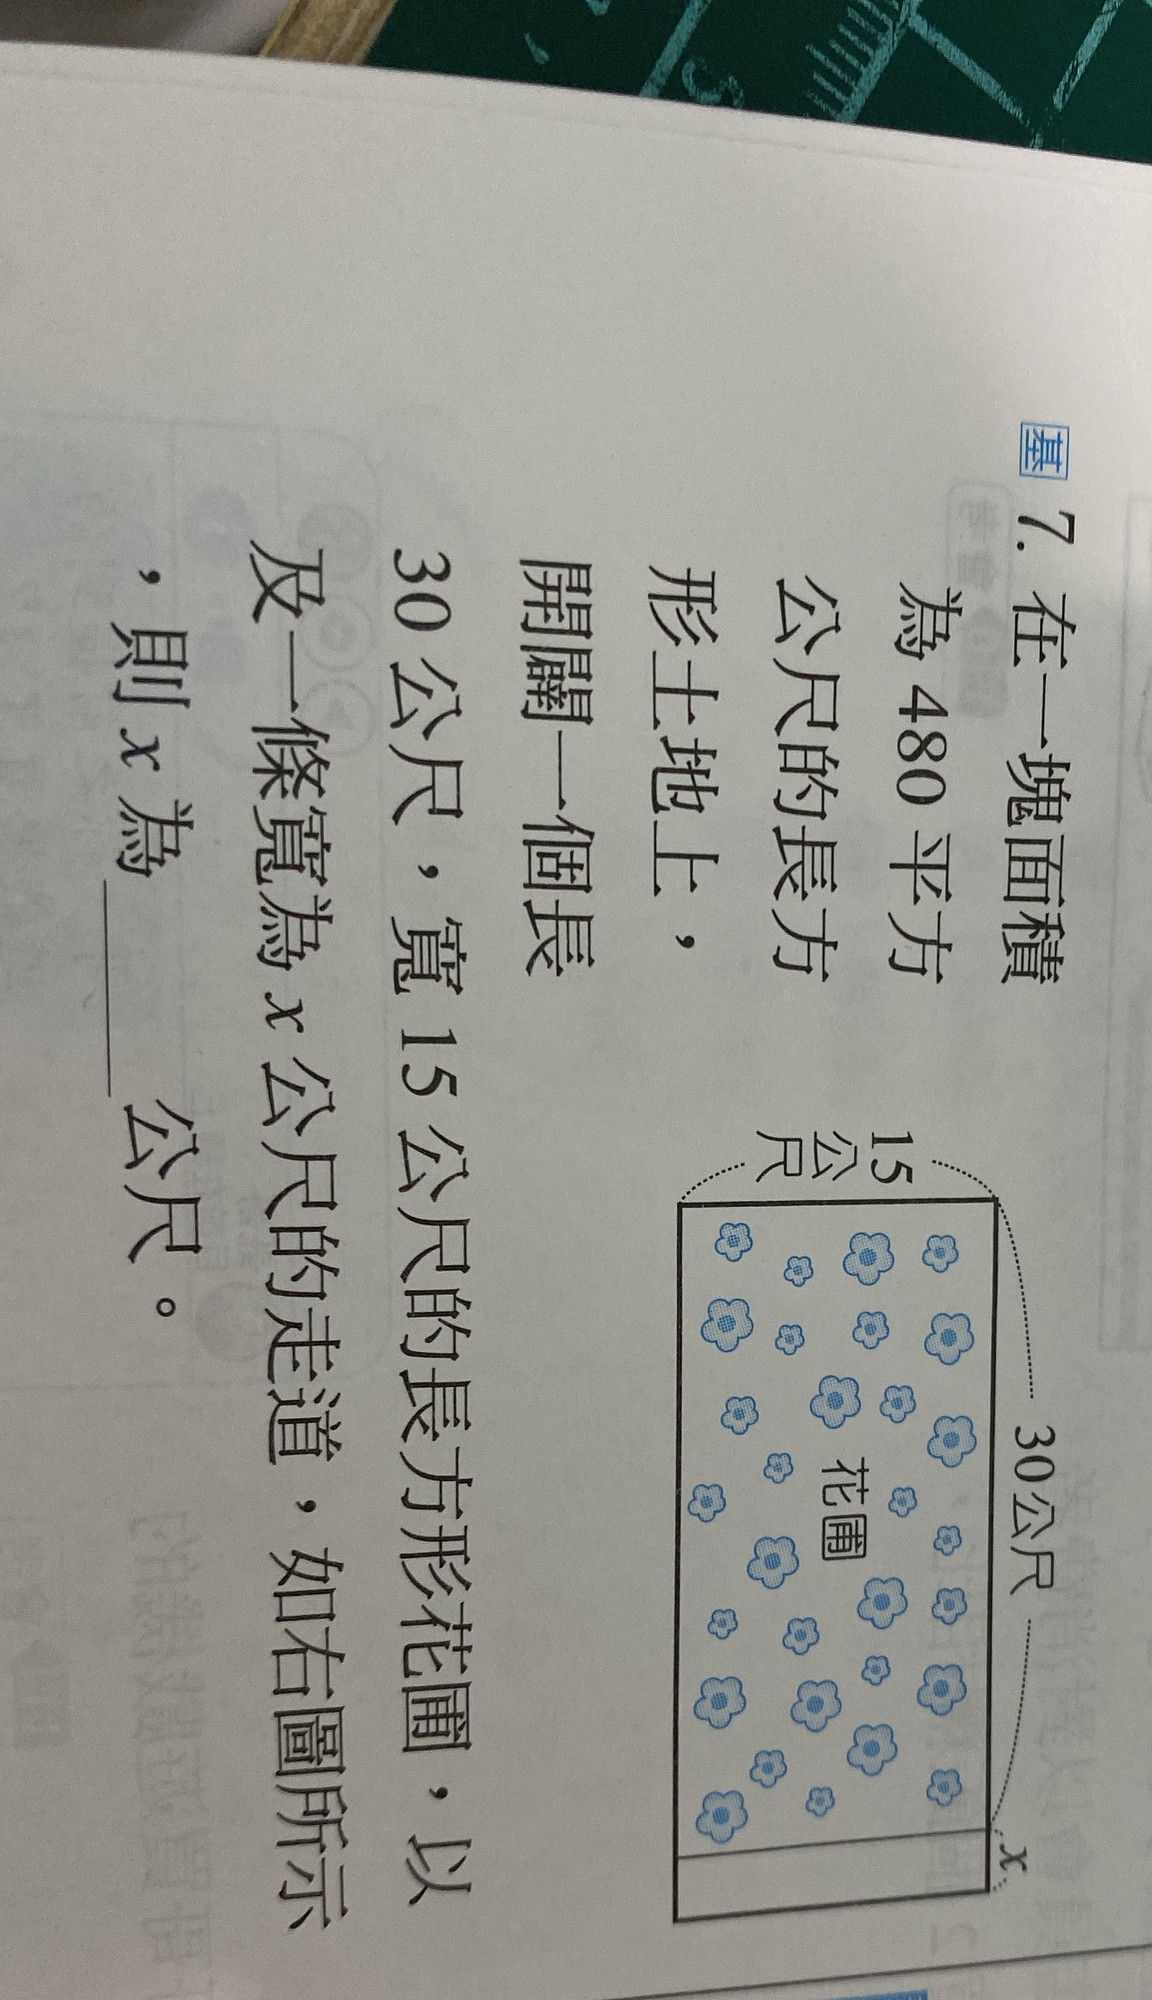 基 7. 在一塊面積
為 480 平方
公尺的長方
形土地上，
開闢一個長
30 公尺，寬 15 公尺的長方形花圃，以
及一條寬為 x 公尺的走道，如右圖所示
，則 x 為____公尺。
30公尺
x
15
公
尺
花圃